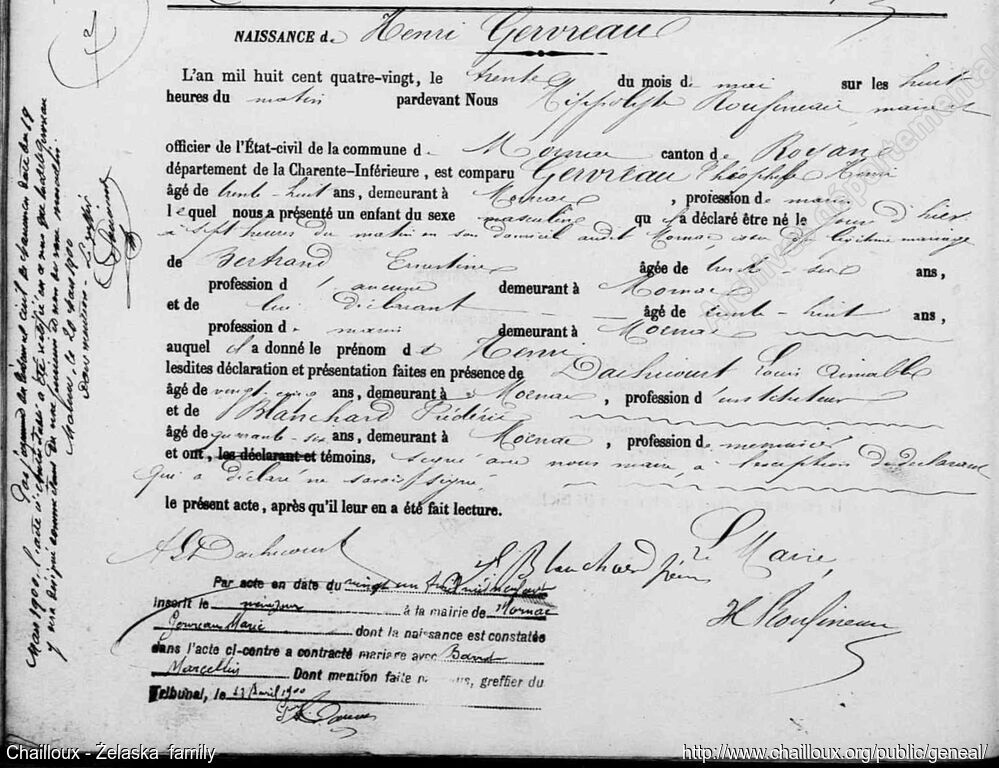 NAISSANCE de Henri Gervreau
L'an mil huit cent quatre-vingt, le trente du mois de mai sur les huit
heures du matin pardevant Nous Hippolyte Roufineau, maire et
officier de l'État-civil de la commune de Mornac canton de Royan
département de la Charente-Inférieure, est comparu Gervreau Théophile Henri
âgé de trente-huit ans, demeurant à Mornac, profession de marin
lequel nous a présenté un enfant du sexe masculin qu'il a déclaré être né le jour d'hier
à sept heures du matin en son domicile audit Mornac, issu du légitime mariage
de Bertrand Ernestine âgée de trente-six ans,
profession d'aucune demeurant à Mornac
et de lui déclarant âgé de trente-huit ans,
profession de marin demeurant à Mornac
auquel il a donné le prénom de Henri
lesdites déclaration et présentation faites en présence de Dashicourt Louis Aimable
âgé de vingt-cinq ans, demeurant à Mornac, profession d'instituteur
et de Blanchard Frédéric
âgé de quarante-six ans, demeurant à Mornac, profession de menuisier
et ont, les déclarant et témoins, signé avec nous maire, à l'exception du déclarant
qui a déclaré ne savoir signer
le présent acte, après qu'il leur en a été fait lecture.
Le Maire,
A L Dashicourt F Blanchard père
H Roufineau
Par acte en date du vingt un avril mil neuf cent
inscrit le même jour à la mairie de Mornac
Gervreau Marie dont la naissance est constatée
dans l'acte ci-contre a contracté mariage avec
Marcellin Dont mention faite par nous, greffier du
Tribunal, le 27 Avril 1900
Par jugement du tribunal civil de Marennes en date du 19
Mars 1900, l'acte ci-contre a été rectifié en ce sens que
y sera désigné comme étant du sexe féminin
Marennes, le 20 Mars 1900
Le greffier
Archives Départementales
Chailloux - Zelaska family
http://www.chailloux.org/public/geneal/